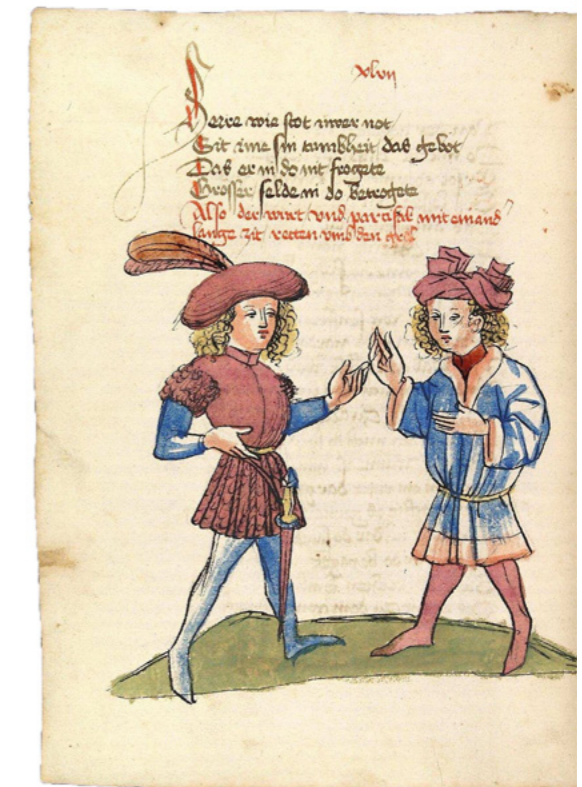 xlvii
Herre wie stot uwer not
Sit ime sin tumbheit das gebot
Das er in do nit frogete
Grosser selde in do betrogete
Also der wirt vnd partzifal mit einand
lange zit retten vmb den grol